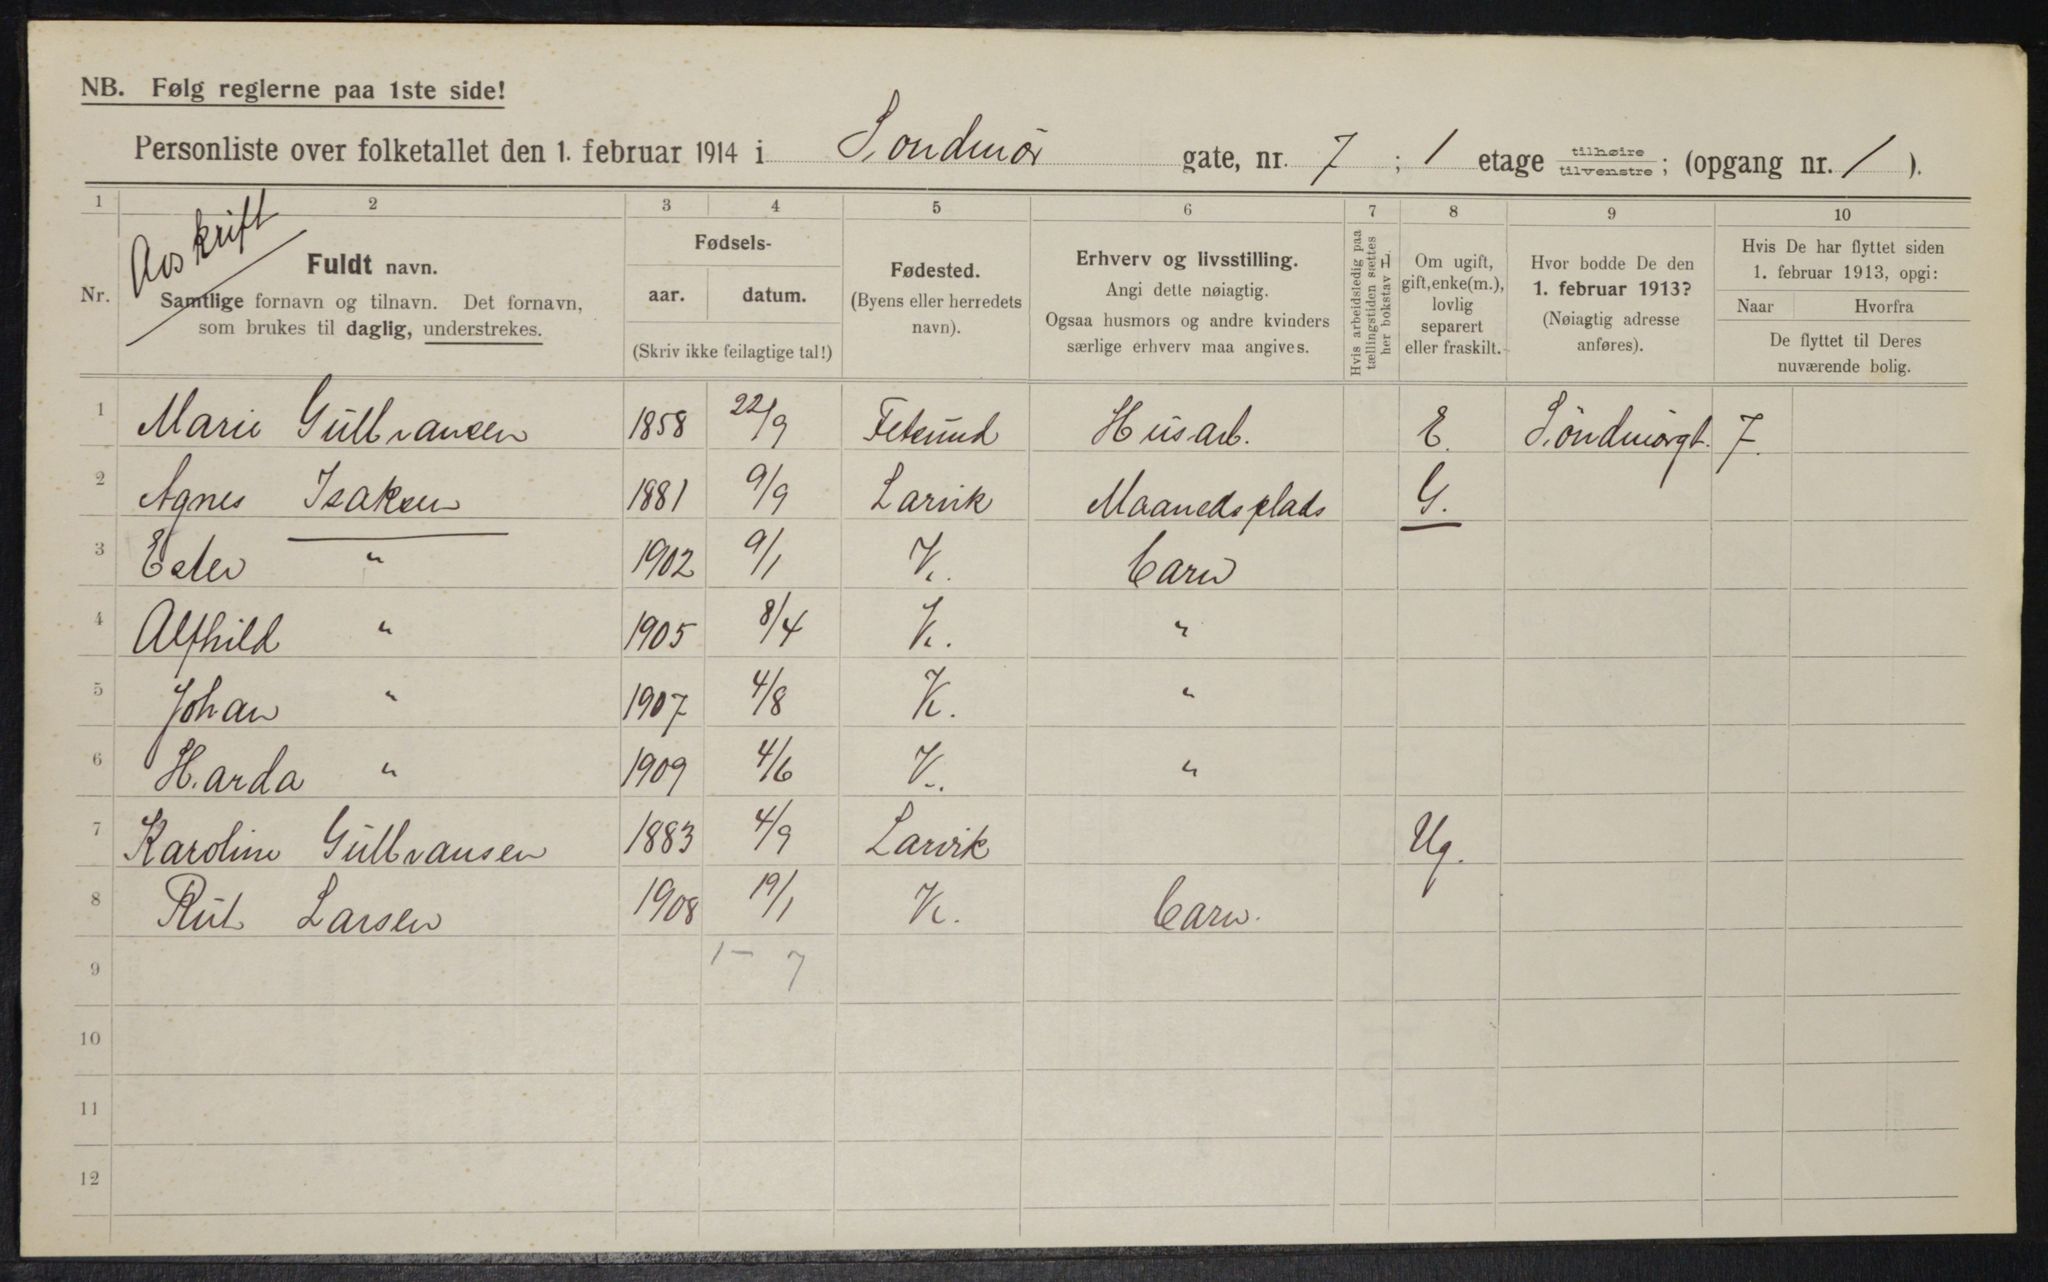 NB. Følg reglerne paa 1ste side!
Personliste over folketallet den 1. februar 1914 i Söndmör gate, nr. 7 ; 1 etage tilhøire/tilvenstre; (opgang nr. 1 ).
1 2 3 4 5 6 7 8 9 10
Avskrift
Nr.
Fuldt navn.
Samtlige fornavn og tilnavn. Det fornavn,
som brukes til daglig, understrekes.
Fødsels-
aar. datum.
(Skriv ikke feilagtige tal!)
Fødested.
(Byens eller herredets
navn).
Erhverv og livsstilling.
Angi dette nøiagtig.
Ogsaa husmors og andre kvinders
særlige erhverv maa angives.
Hvis arbeidsledig paa
tællingstiden sættes
her bokstav L.
Om ugift,
gift, enke(m.),
lovlig
separert
eller fraskilt.
Hvor bodde De den
1. februar 1913?
(Nøiagtig adresse
anføres).
Hvis De har flyttet siden
1. februar 1913, opgi:
Naar Hvorfra
De flyttet til Deres
nuværende bolig.
1 Marie Gulbransen 1858 22/9 Fetsund Husarb. E. Söndmörgt. 7.
2 Agnes Isaksen 1881 9/9 Larvik Maanedsplads G.
3 Ester " 1902 9/1 K. Barn
4 Alfhild " 1905 8/4 K. "
5 Johan " 1907 4/8 K. "
6 Harda " 1909 4/6 K. "
7 Karoline Gulbransen 1883 4/9 Larvik Ug.
8 Rut Larsen 1908 19/1 K. Barn.
9 1 – 7
10
11
12